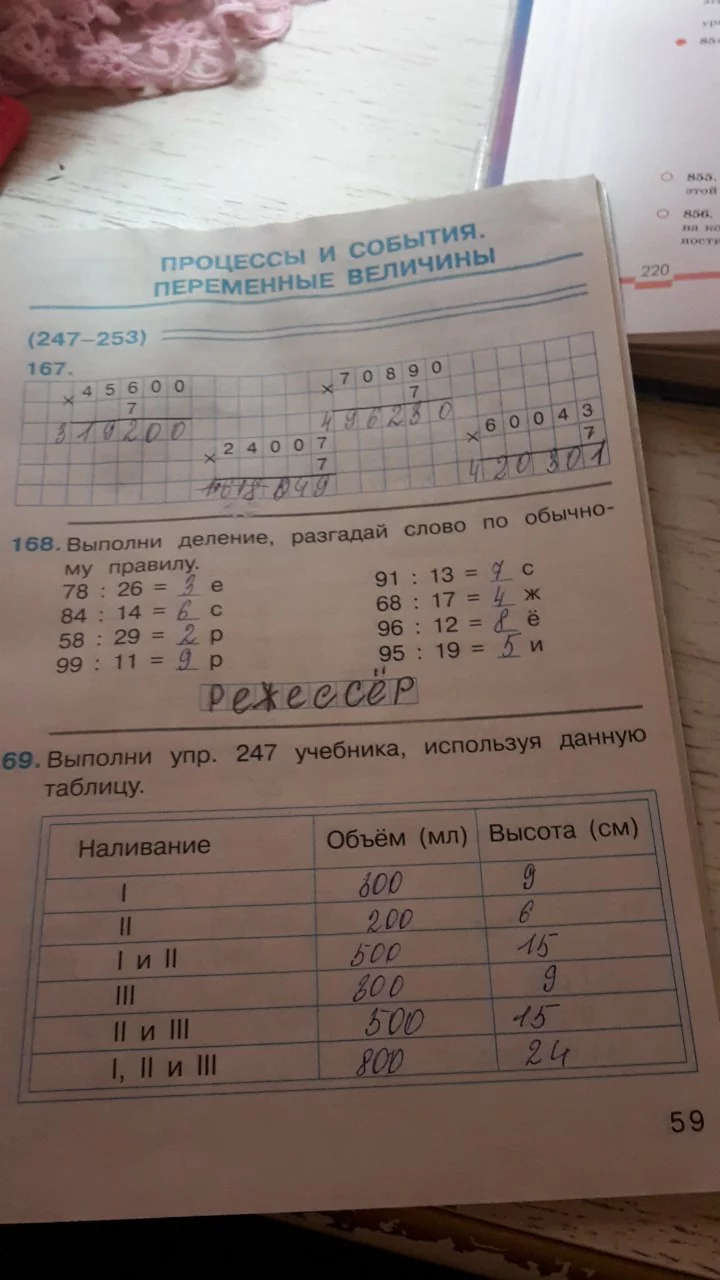 855.
этой
856.
на ко
ности
220
ПРОЦЕССЫ И СОБЫТИЯ.
ПЕРЕМЕННЫЕ ВЕЛИЧИНЫ
(247–253)
167.
× 45600
7
319200
× 24007
7
× 70890
7
496230
× 60043
7
420301
168. Выполни деление, разгадай слово по обычно-
му правилу.
78 : 26 = 3 е
84 : 14 = 6 с
58 : 29 = 2 р
99 : 11 = 9 р
91 : 13 = 7 с
68 : 17 = 4 ж
96 : 12 = 8 ё
95 : 19 = 5 и
режессёр
69. Выполни упр. 247 учебника, используя данную
таблицу.
Наливание Объём (мл) Высота (см)
I 300 9
II 200 6
I и II 500 15
III 300 9
II и III 500 15
I, II и III 800 24
59